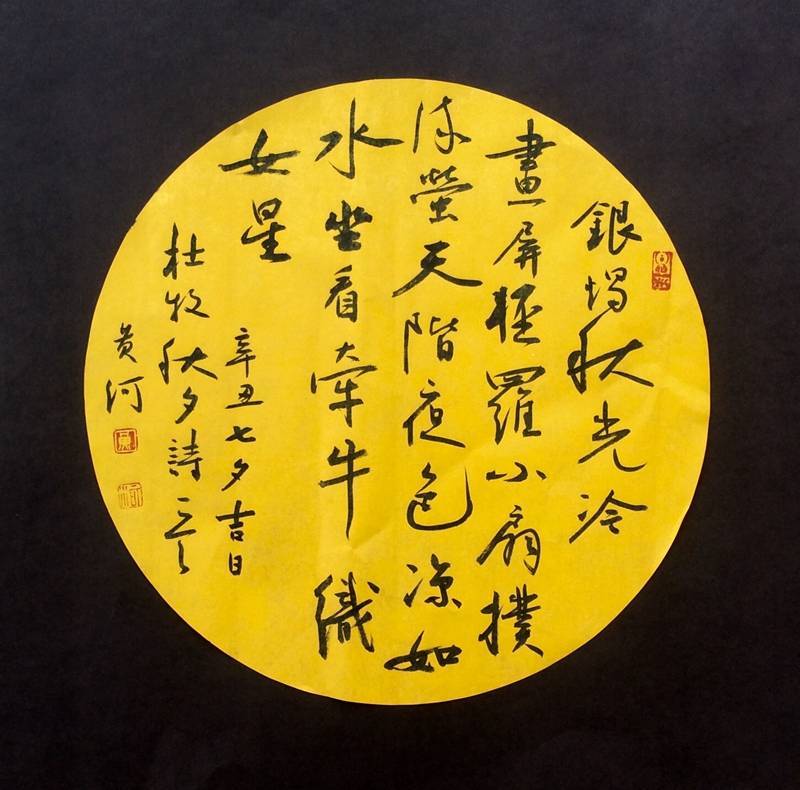 銀燭秋光冷
畫屏輕羅小扇撲
流螢天階夜色涼如
水坐看牽牛織
女星
辛丑七夕吉日
杜牧秋夕詩一首
黃河